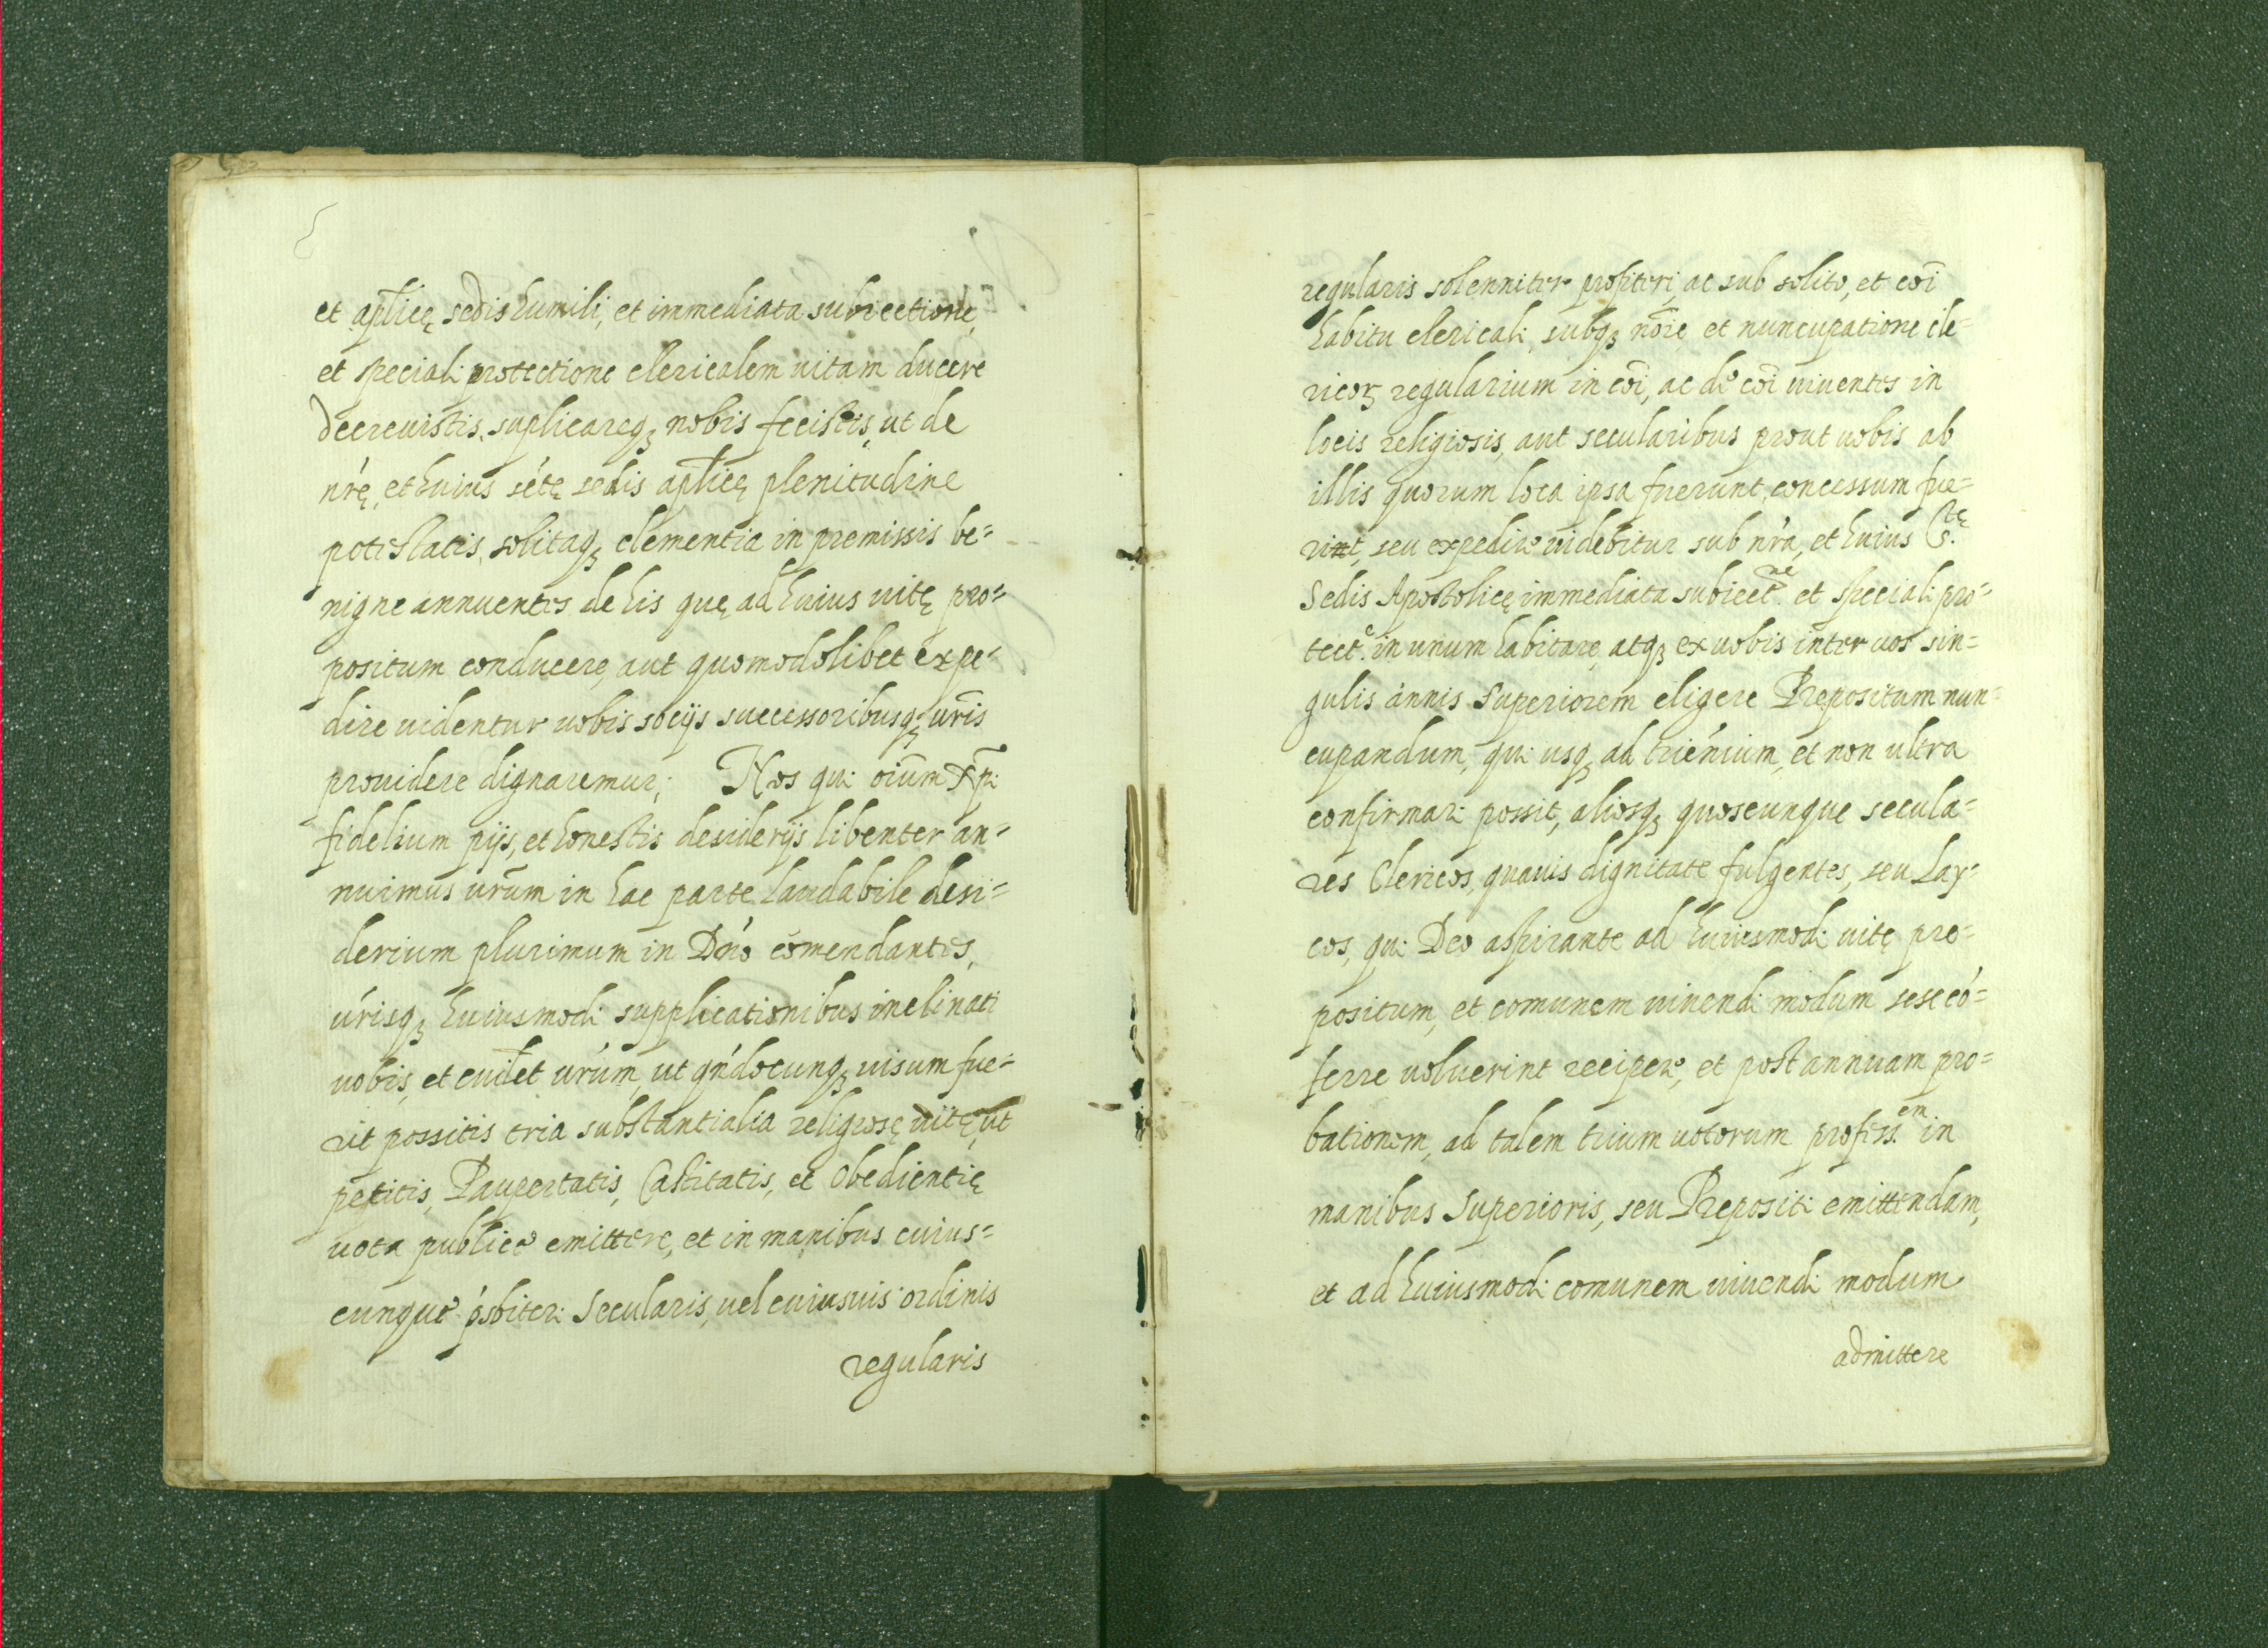 et aplicę sedis humili, et immediata subiectione,
et speciali protectione clericalem uitam ducere
decreuistis, suplicareq; nobis fecistis, ut de
nrę, et huius sctę sedis aplicę plenitudine
potestatis, solitaq; clementia in premissis be=
nigne annuentes de his quę ad huius uitę pro=
positum conducere, aut quomodolibet expe=
dire uidentur uobis socijs successoribusq; uris
prouidere dignaremur; Nos qui oium Xpi
fidelium pijs, et honestis desiderijs libenter an=
nuimus urum in hac parte laudabile desi=
derium plurimum in Dno comendantes,
urisq; huiusmodi supplicationibus inclinati
uobis, et cuilet urum, ut qndocunq; uisum fue=
rit possitis tria substantialia religiosę uitę, ut
petitis, Paupertatis, Castitatis, et Obedientię
uota publicè emittere, et in manibus cuius=
cunque psbiteri Secularis, uel cuiusuis ordinis
regularis
regularis solenniter profiteri, ac sub solito, et coi
habitu clericali, subq; noie, et nuncupatione cle=
ricoꝝ regularium in coi, ac de coi uiuentes in
locis religiosis, aut secularibus prout uobis ab
illis quorum loca ipsa fuerunt, concessum fue=
rint, seu expedire uidebitur sub nra, et huius S.tę
Sedis Apostolicę immediata subiect.ne et speciali pro=
tect.e in unum habitare, atq; ex uobis inter uos sin=
gulis annis Superiorem eligere Prepositum nun=
cupandum, qui usq; ad trienium, et non ultra
confirmari possit, aliosq; quoscunque secula=
res Clericos, quauis dignitate fulgentes, seu Lay=
cos, qui Deo aspirante ad huiusmodi uitę pro=
positum, et comunem uiuendi modum sese có=
ferre uoluerint recipere, et post annuam pro=
bationem, ad talem trium uotorum profess.em in
manibus Superioris, seu Prepositi emittendam,
et ad huiusmodi comunem uiuendi modum
admittere